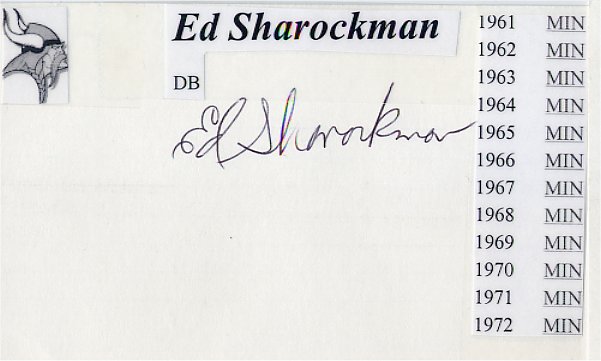 Ed Sharockman
DB
Ed Sharockman
1961 MIN
1962 MIN
1963 MIN
1964 MIN
1965 MIN
1966 MIN
1967 MIN
1968 MIN
1969 MIN
1970 MIN
1971 MIN
1972 MIN